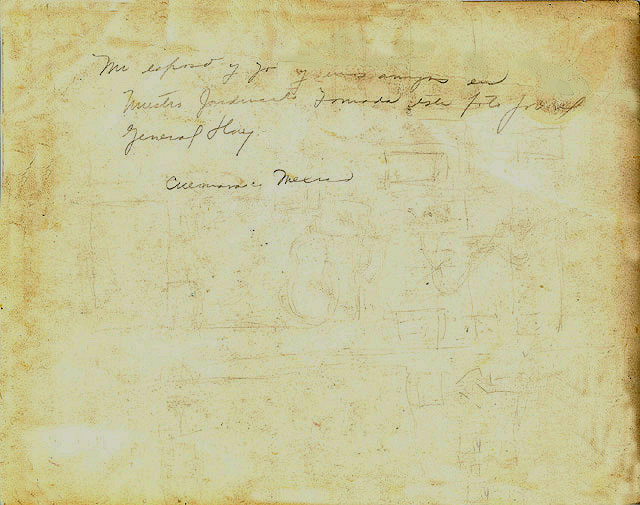 Mi esposo y yo y unos amigos en
Nuestro Jardincito Tomada esta foto por el
General Hoy
Cuernavaca Mexico